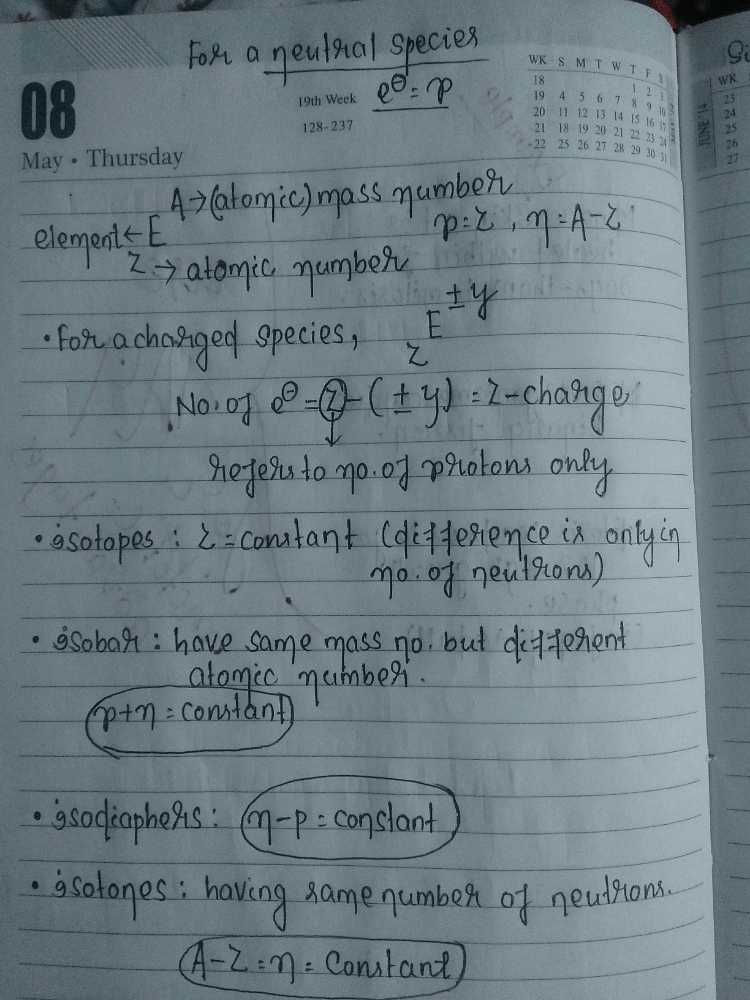 For a neutral species
e⊖ = p
08
19th Week
128-237
May • Thursday
WK S M T W T F S
18 1 2 3
19 4 5 6 7 8 9 10
20 11 12 13 14 15 16 17
21 18 19 20 21 22 23 24
22 25 26 27 28 29 30 31
A → (atomic) mass number
element ← E
p = Z , n = A - Z
Z → atomic number
• For a charged species, Z E ±y
No. of e⊖ = Z - (± y) = Z - charge
↓
refers to no. of protons only
• isotopes : Z = constant (difference is only in
no. of neutrons)
• isobar : have same mass no. but different
atomic number.
p+n = constant
• isodiaphers : n-p = constant
• isotones : having same number of neutrons.
A-Z = n = Constant
JUNE '14
WK
23
24
25
26
27